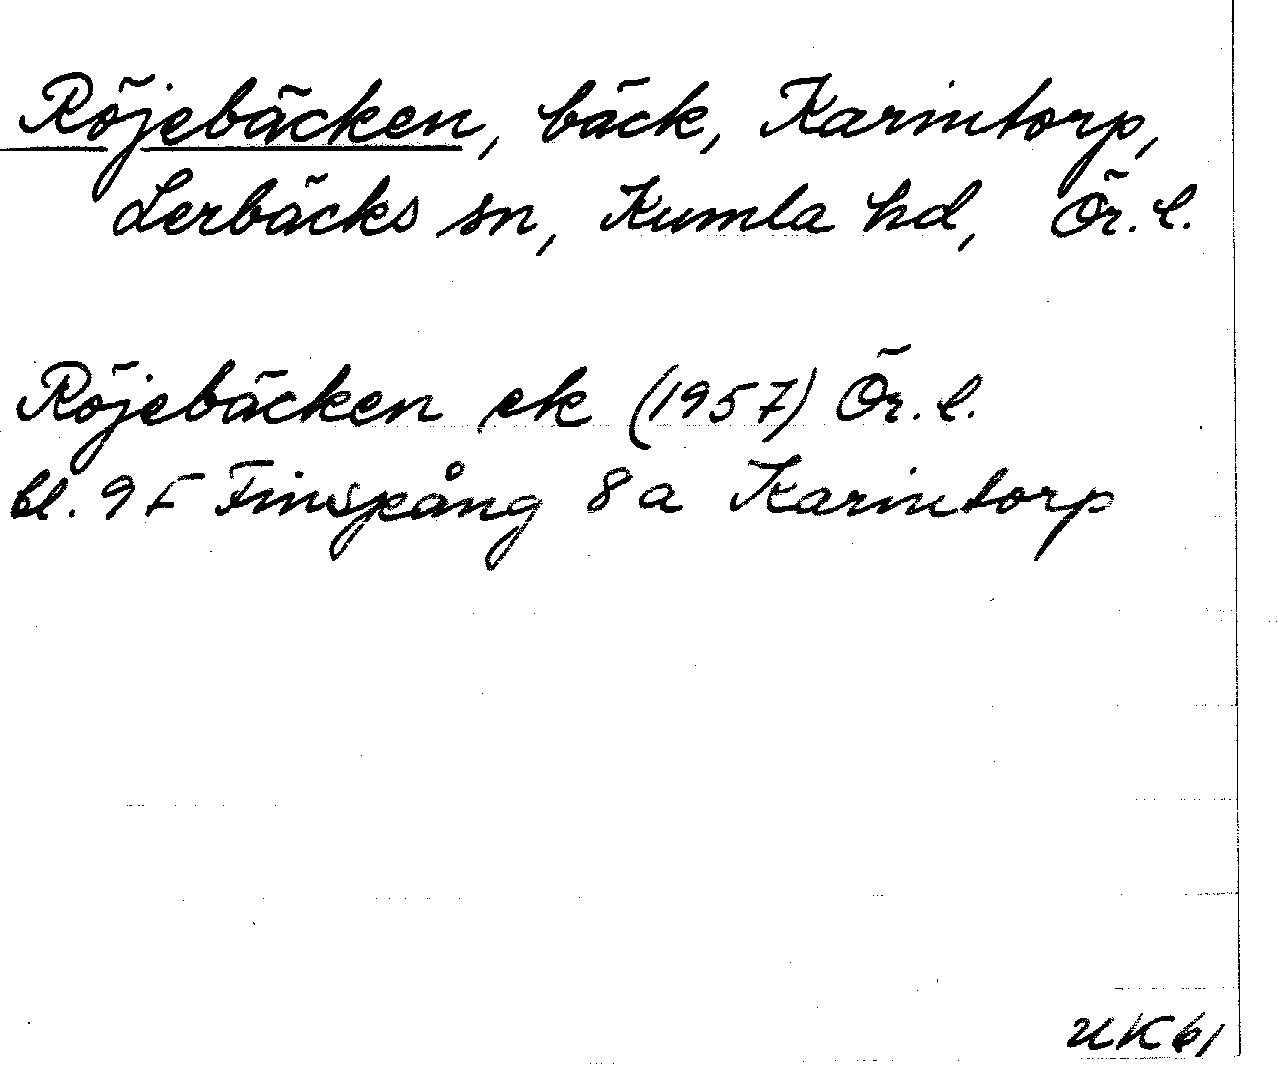 Röjebäcken, bäck, Karintorp,
Lerbäcks sn, Kumla hd, Ör. l.
Röjebäcken ek (1957) Ör. l.
bl. 9F Finspång 8a Karintorp
UK61